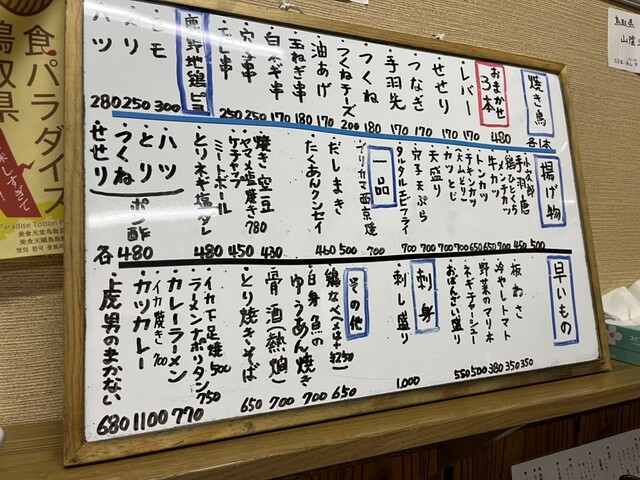 焼き鳥
各1本
おまかせ3本 480
レバー 170
せせり 170
つなぎ 170
手羽先 170
つくね 180
つくねチーズ 200
油あげ 170
玉ねぎ串 180
白ネギ串 170
250
250
鹿野地鶏ピヨ
モモ 300
ハツ 280
揚げ物
小次郎 500
手羽唐 450
鶏ひとくちカツ 700
牛カツ 650
トンカツ 650
チキンカツ 670
天盛り 700
カツとじ 700
穴子天ぷら 700
タルタルモブフライ 700
一品
ブリカマ西京焼 700
だしまき 500
たくあんクンセイ 460
焼き空豆 430
ヤマメ塩焼き 780
ケチャップミートボール 450
とりネギ塩ダレ 480
ハツ
とり
つくね
せせり
ポン酢
各480
早いもの
板わさ 350
冷やしトマト 350
野菜のマリネ 380
ネギチャーシュー 500
おばんざい盛り 550
刺身
刺し盛り 1,000
その他
鶏なべ
白身魚のゆうあん焼き 700
骨酒(熱燗) 700
とり焼きそば 650
イカ下足焼 500
ラーメンナポリタン 750
カレーラーメン 770
イカ焼き 700
カツカレー 1100
上虎男のまかない 680
食パラダイス
鳥取県
Paradise Tottori
鳥取県
山陰